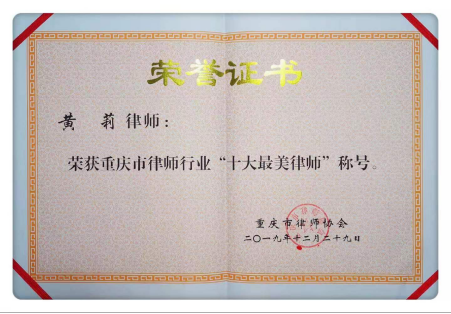 荣誉证书
黄 莉 律师：
荣获重庆市律师行业“十大最美律师”称号。
重庆市律师协会
二〇一九年十二月二十九日